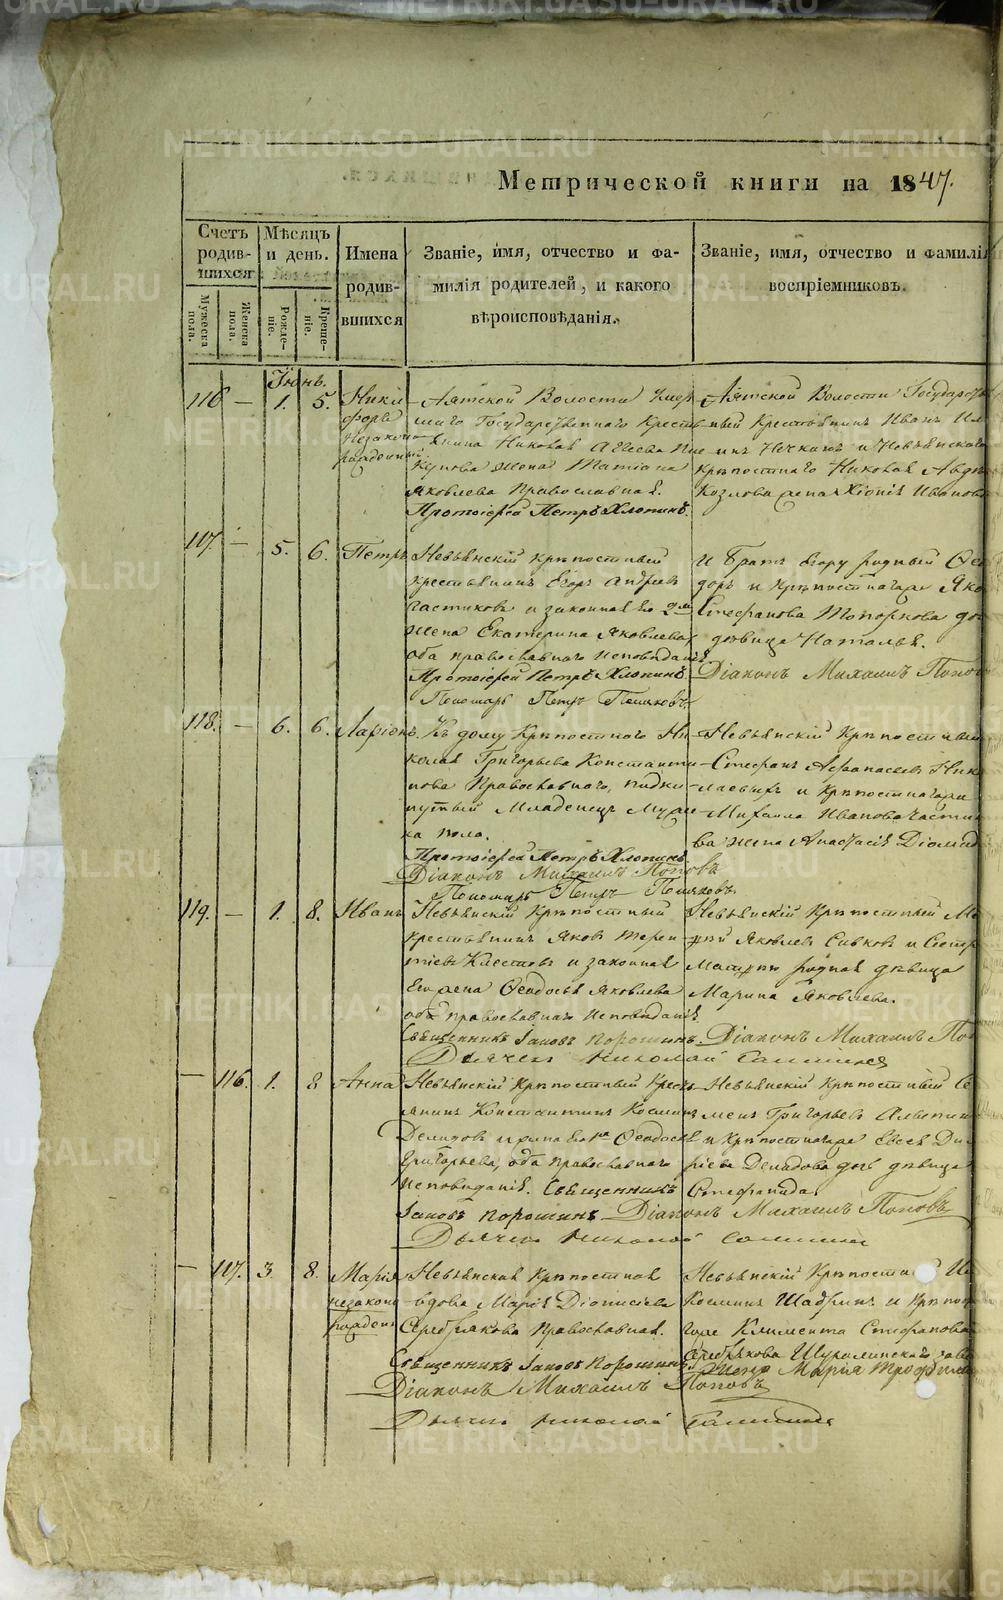 METRIKI.GASO-URAL.RU
Метрической книги на 1847.
Счетъ
родив-
шихся
Мѣсяцъ
и день.
Имена
родив-
вшихся
Званіе, имя, отчество и фа-
милія родителей, и какого
вѣроисповѣданія.
Званіе, имя, отчество и фамилія
воспріемниковъ.
Мужеска
пола.
Женска
пола.
Рожде-
ніе.
Креще-
ніе.
Іюнь.
116 — 1. 5.
Ники
форъ
незаконо
рожденный
Аятской Волости
Государственнаго Кресть
янина Николая
жена Татіана
Яковлева Православная.
Протоіерей Петръ Хлопинъ.
Аятской Волости Государств
ный Крестьянинъ Иванъ
и Невьянскаго
крѣпостнаго Николая Авдѣ
Козлова жена Хіонія Иванова
117 — 5. 6. Петръ
Невьянскій крѣпостный
крестьянинъ Егоръ Андреевъ
Частиковъ и законная его 2я
жена Екатерина Яковлева
оба православнаго исповѣданія
Протоіерей Петръ Хлопинъ
Пономарь Петръ Поляковъ
И братъ Егору родный Ѳео
доръ и Крѣпостнагоже Яко
Стефанова Топоркова до
дѣвица Наталья.
Діаконъ Михаилъ Попо
118. — 6. 6. Ларіонъ.
Къ дому Крѣпостного Ни
колая Григорьева Константи
нова Православнаго, подки
нутый Младенецъ Мужес
ка пола.
Протоіерей Петръ Хлопинъ
Діаконъ Михаилъ Поповъ
Пономарь Петръ Поляковъ
Невьянскій Крѣпостный
Стефанъ Афанасьевъ Ник
лаевыхъ и Крѣпостнагоже
Михаила Иванова Части
ва жена Анастасія Діомид
119. — 1. 8. Иванъ
Невьянскій Крѣпостный
крестьянинъ Яковъ Терен
тіевъ Клестовъ и законная
Его жена Ѳеодосья Яковлева
оба православнаго исповѣданія
Священникъ Іаковъ Порошинъ
Дьячекъ Николай
Невьянскій Крѣпостный
Яковлевъ Сивковъ и Сестра
родная дѣвица
Марина Яковлева.
Діаконъ Михаилъ По
— 116. 1. 8 Анна
Невьянскій Крѣпостный Кресть
янинъ Константинъ Козминъ
Демидовъ и жена его Ѳеодосья
Григорьева, оба православнаго
исповѣданія. Священникъ
Іаковъ Порошинъ Діаконъ Михаилъ Поповъ
Дьячекъ Николай
Невьянскій Крѣпостный Се
менъ Григорьевъ
и Крѣпостнагоже Евсея Ди
ріева Демидова дочь дѣвица
Стефанида
— 117. 3. 8.
Марія
незакон
рожден
Невьянская Крѣпостная
вдова Марія Діонисіева
Серебрякова Православная.
Священникъ Іаковъ Порошинъ
Діаконъ Михаилъ Поповъ
Дьячекъ Николай
Невьянскій Крѣпостный
Козминъ Шадринъ и Крѣпос
гоже Климента Стефанова
Серебрякова Шуралинскаго заво
жена Марія Трофимо